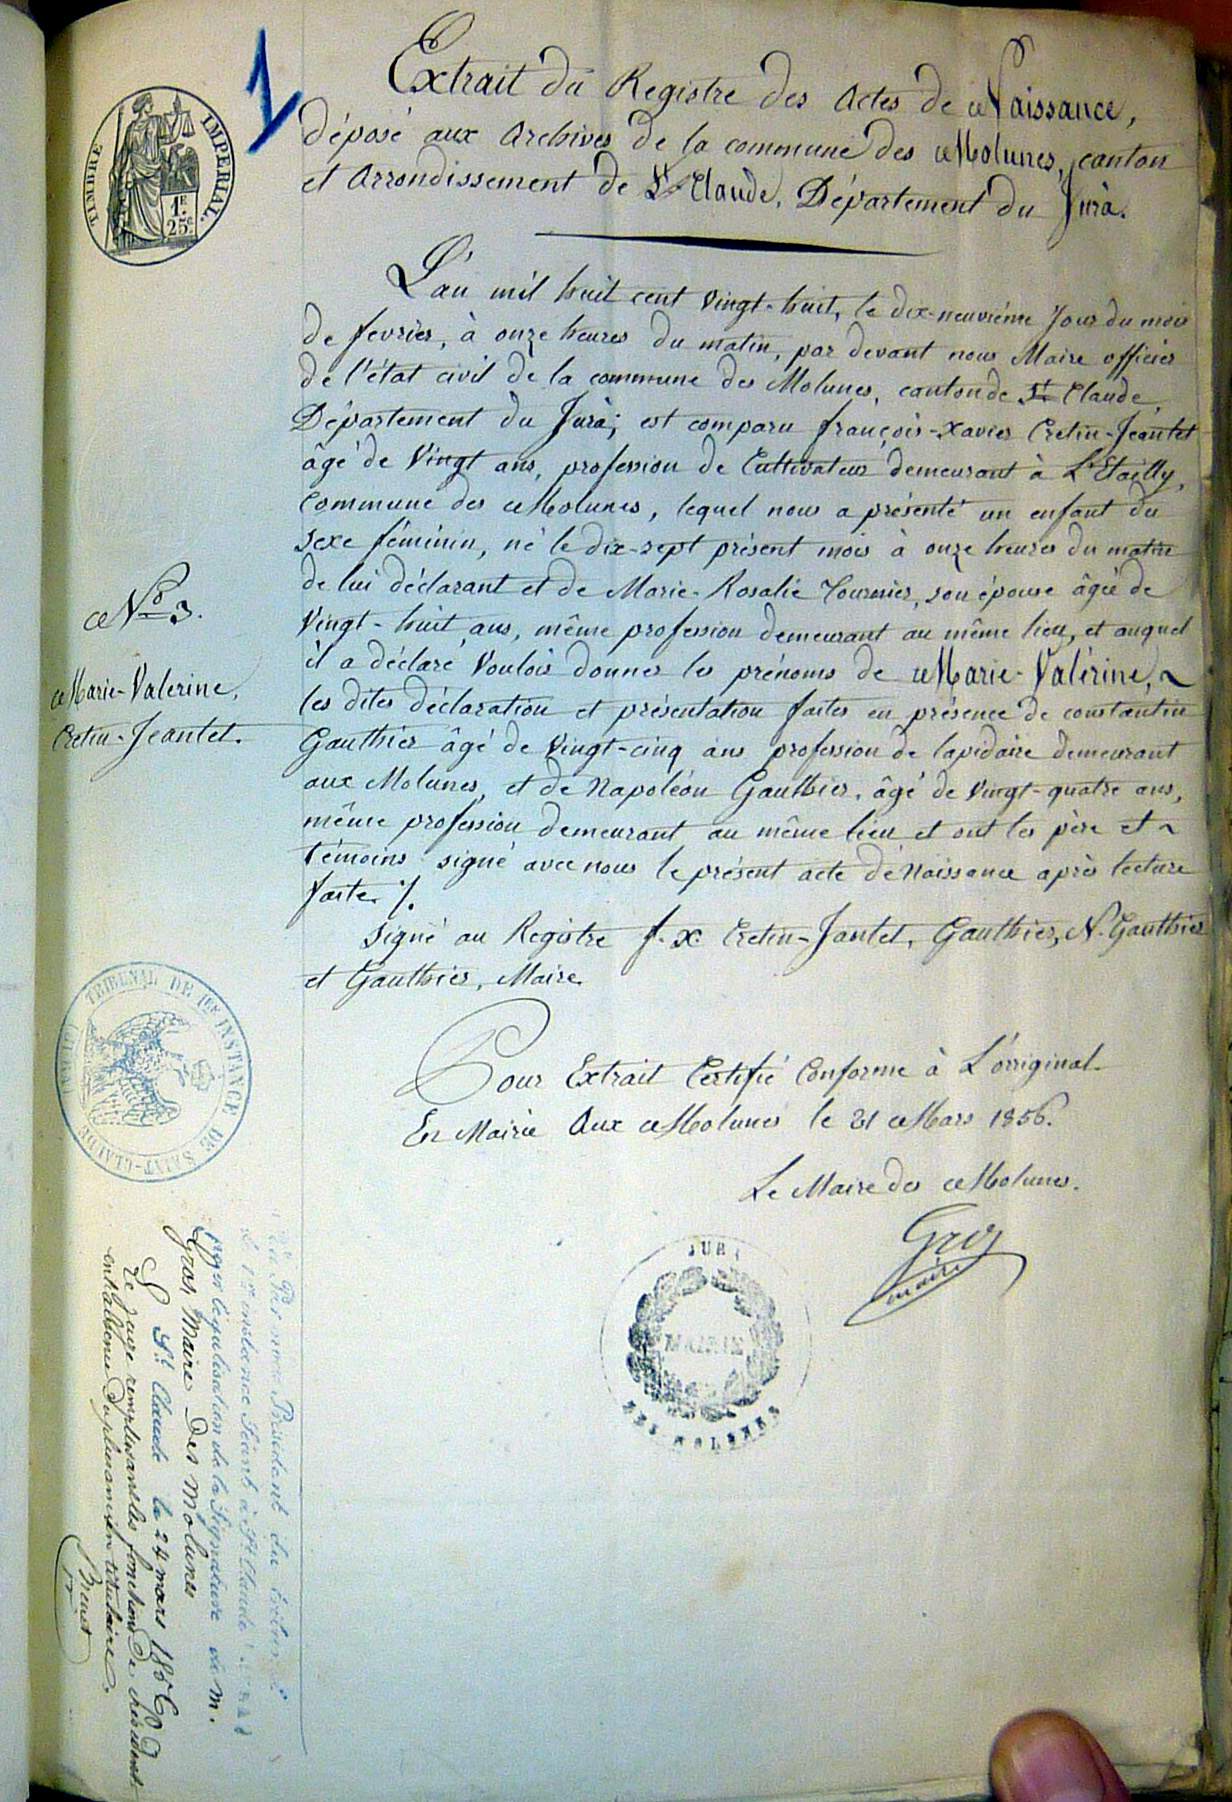 1
TIMBRE IMPERIAL.
1F.
25c.
Extrait du Registre des Actes de Naissance,
déposé aux Archives de la commune des Molunes, canton
et Arrondissement de St Claude, Département du Jura.
L'an mil huit cent vingt-huit, le dix-neuvième jour du mois
de fevrier, à onze heures du matin, par devant nous Maire officier
de l'état civil de la commune des Molunes, canton de St Claude,
Département du Jura; est comparu françois-Xavier Cretin-Jeantet
âgé de Vingt ans, profession de Cultivateur demeurant à L'Etailly,
Commune des Molunes, lequel nous a présenté un enfant du
sexe féminin, né le dix-sept présent mois à onze heures du matin
de lui déclarant et de Marie-Rosalie Tournier, son épouse âgée de
Vingt-huit ans, même profession demeurant au même lieu, et auquel
il a déclaré Vouloir donner les prénoms de Marie-Valérine,
les dites déclaration et présentation faites en présence de constantin
Gauthier âgé de Vingt-cinq ans profession de lapidaire demeurant
aux Molunes, et de Napoléon Gauthier, âgé de Vingt-quatre ans,
même profession demeurant au même lieu et ont les père et
témoins signé avec nous le présent acte de Naissance après lecture
faite ./.
Signé au Registre f. x. Cretin-Jantet, Gauthier, N. Gauthier
et Gauthier, Maire.
No 3.
Marie-Valerine,
Cretin-Jeantet.
Pour Extrait Certifié Conforme à L'original.
En Mairie Aux Molunes le 21 Mars 1856.
Le Maire des Molunes.
Gros
maire
JURA
MAIRIE
DES MOLUNES
TRIBUNAL DE 1ere INSTANCE DE SAINT-CLAUDE
Vu Par nous Président du tribunal
de 1ere instance séant à St Claude
pour légalisation de la Signature de M.
Gros, Maire des Molunes
St Claude le 24 mars 1856
Le Juge remplissant les fonctions de président
en l'absence du plus ancien titulaire.